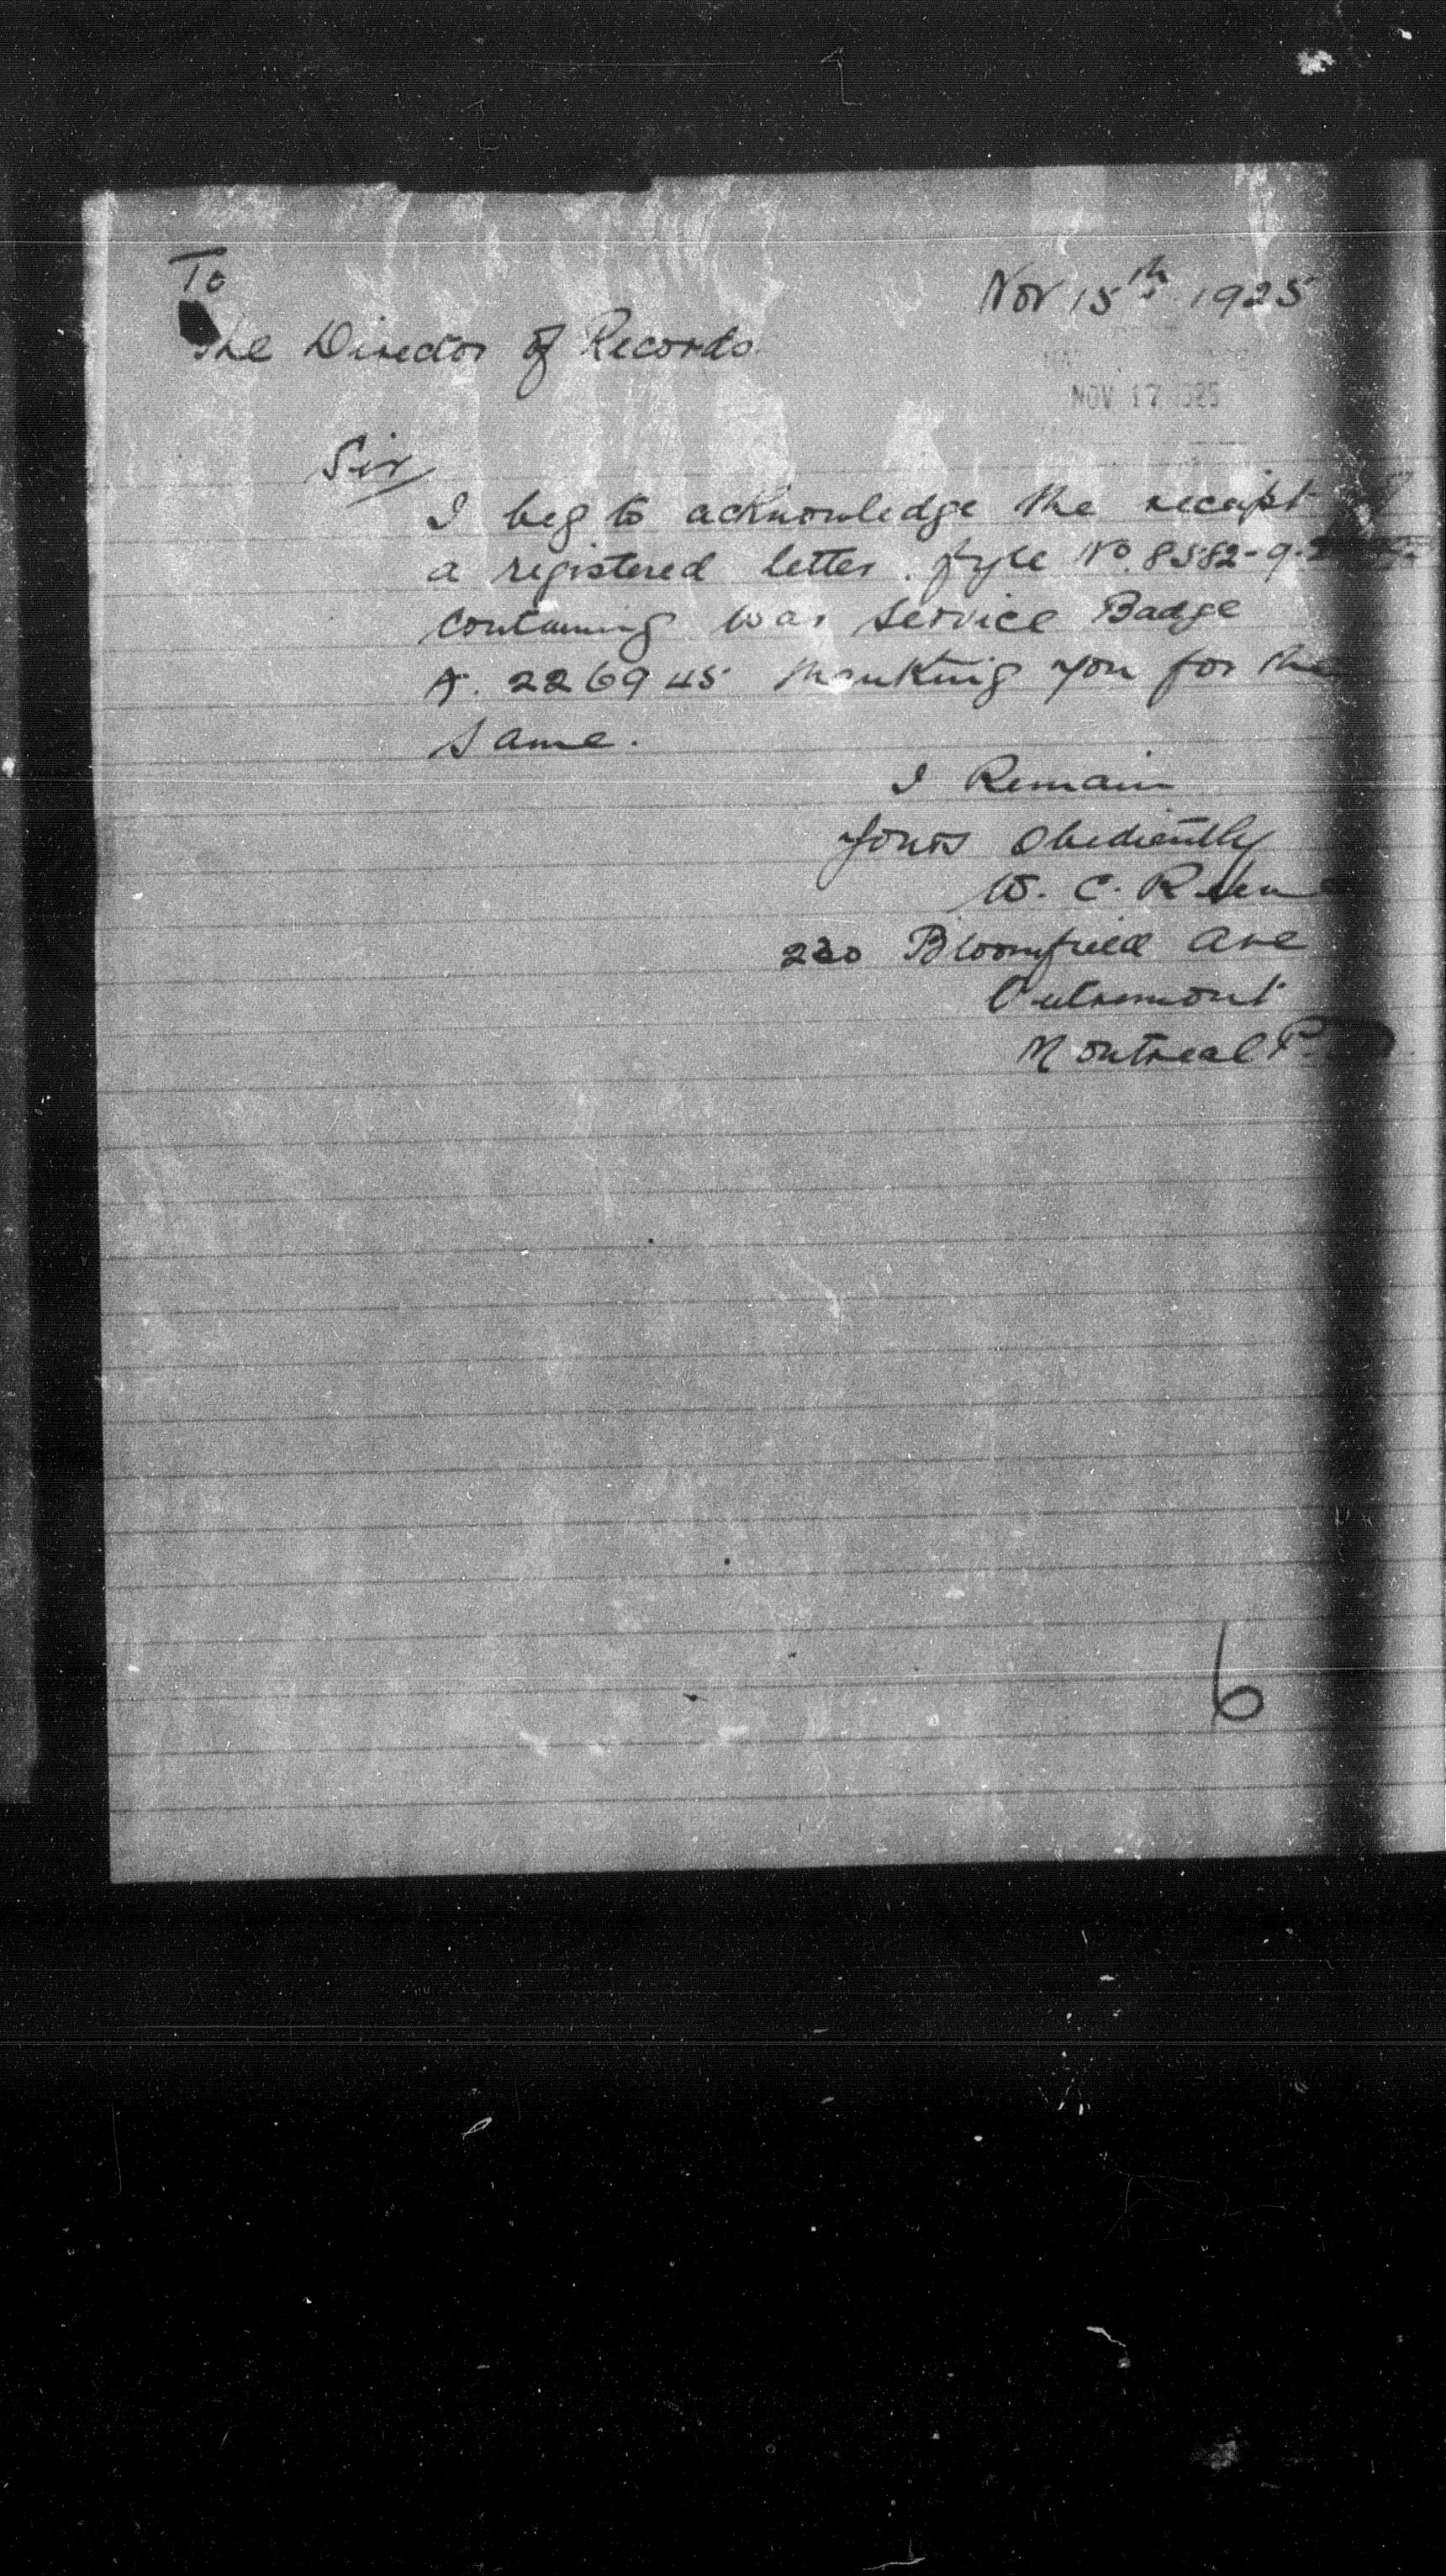 To
Nov 15th 1925
The Director of Records
NOV 17 1925
Sir
I beg to acknowledge the receipt of
a registered letter. fyle No. 8582-9-
containing War Service Badge
A. 226945 thanking you for the
same.
I Remain
Yours Obediently
W. C.
230 Bloomfield Ave
Outremont
Montreal P.
6